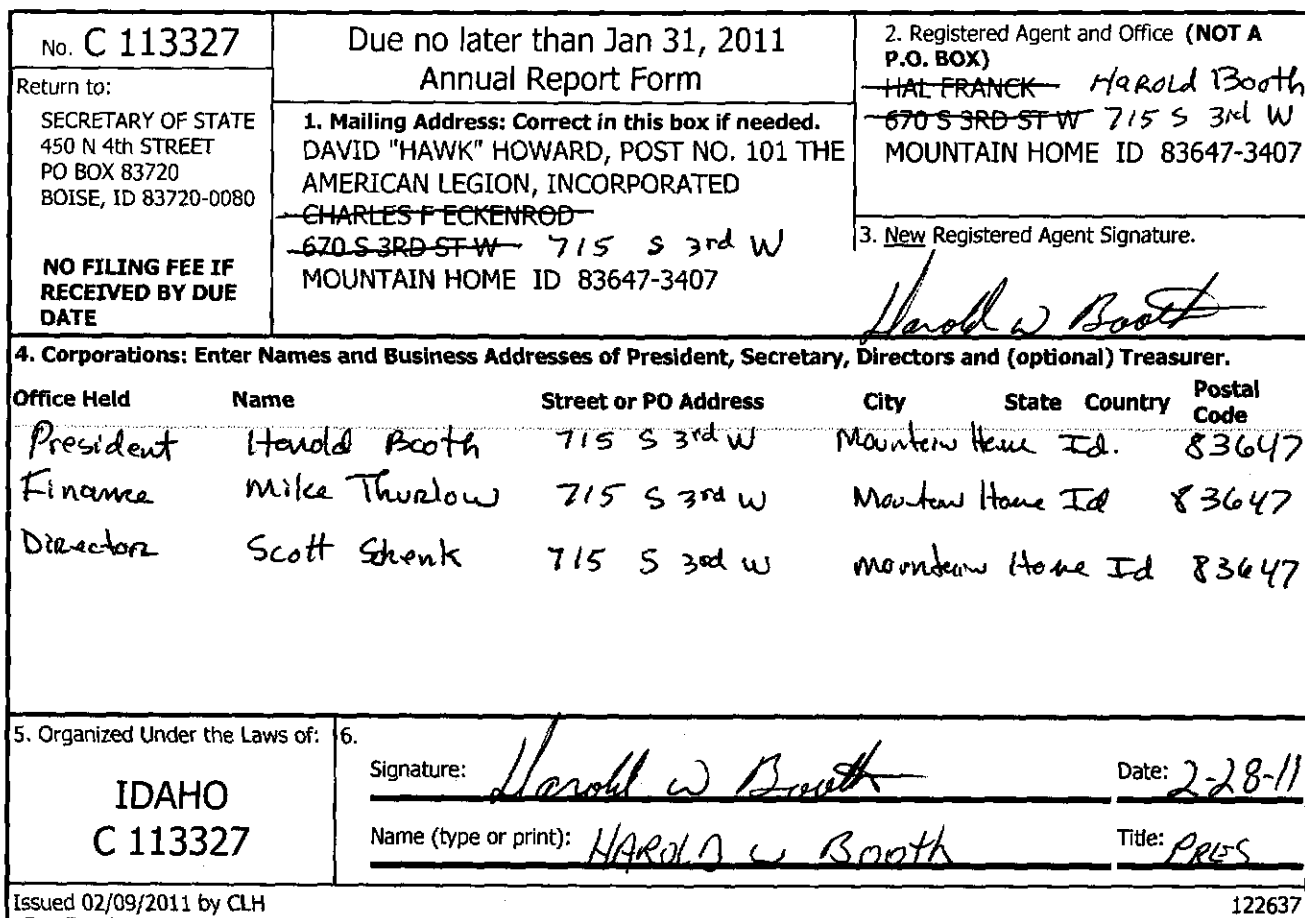 No. C 113327
Return to:
SECRETARY OF STATE
450 N 4th STREET
PO BOX 83720
BOISE, ID 83720-0080
NO FILING FEE IF
RECEIVED BY DUE
DATE
Due no later than Jan 31, 2011
Annual Report Form
1. Mailing Address: Correct in this box if needed.
DAVID "HAWK" HOWARD, POST NO. 101 THE
AMERICAN LEGION, INCORPORATED
CHARLES F ECKENROD
670 S 3RD ST W 715 S 3rd W
MOUNTAIN HOME ID 83647-3407
2. Registered Agent and Office (NOT A
P.O. BOX)
HAL FRANCK Harold Booth
670 S 3RD ST W 715 S 3rd W
MOUNTAIN HOME ID 83647-3407
3. New Registered Agent Signature.
Harold W Booth
4. Corporations: Enter Names and Business Addresses of President, Secretary, Directors and (optional) Treasurer.
Office Held Name Street or PO Address City State Country Postal Code
President Harold Booth 715 S 3rd W Mountain Home Id. 83647
Finance Mike Thurlow 715 S 3rd W Mountain Home Id 83647
Director Scott Shenk 715 S 3rd W Mountain Home Id 83647
5. Organized Under the Laws of:
IDAHO
C 113327
6.
Signature: Harold W Booth Date: 2-28-11
Name (type or print): HAROLD W Booth Title: PRES
Issued 02/09/2011 by CLH 122637